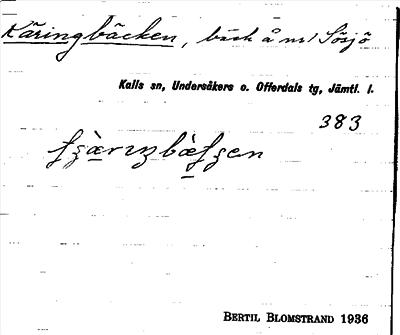 Käringbäcken, bäck å nr 1 Sösjö
Kalls sn, Undersåkers o. Offerdals tg, Jämtl. l.
383
BERTIL BLOMSTRAND 1936